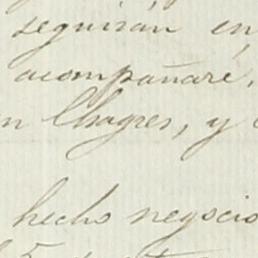 seguirán en
acompañaré,
n Chagres, y
hecho negocio